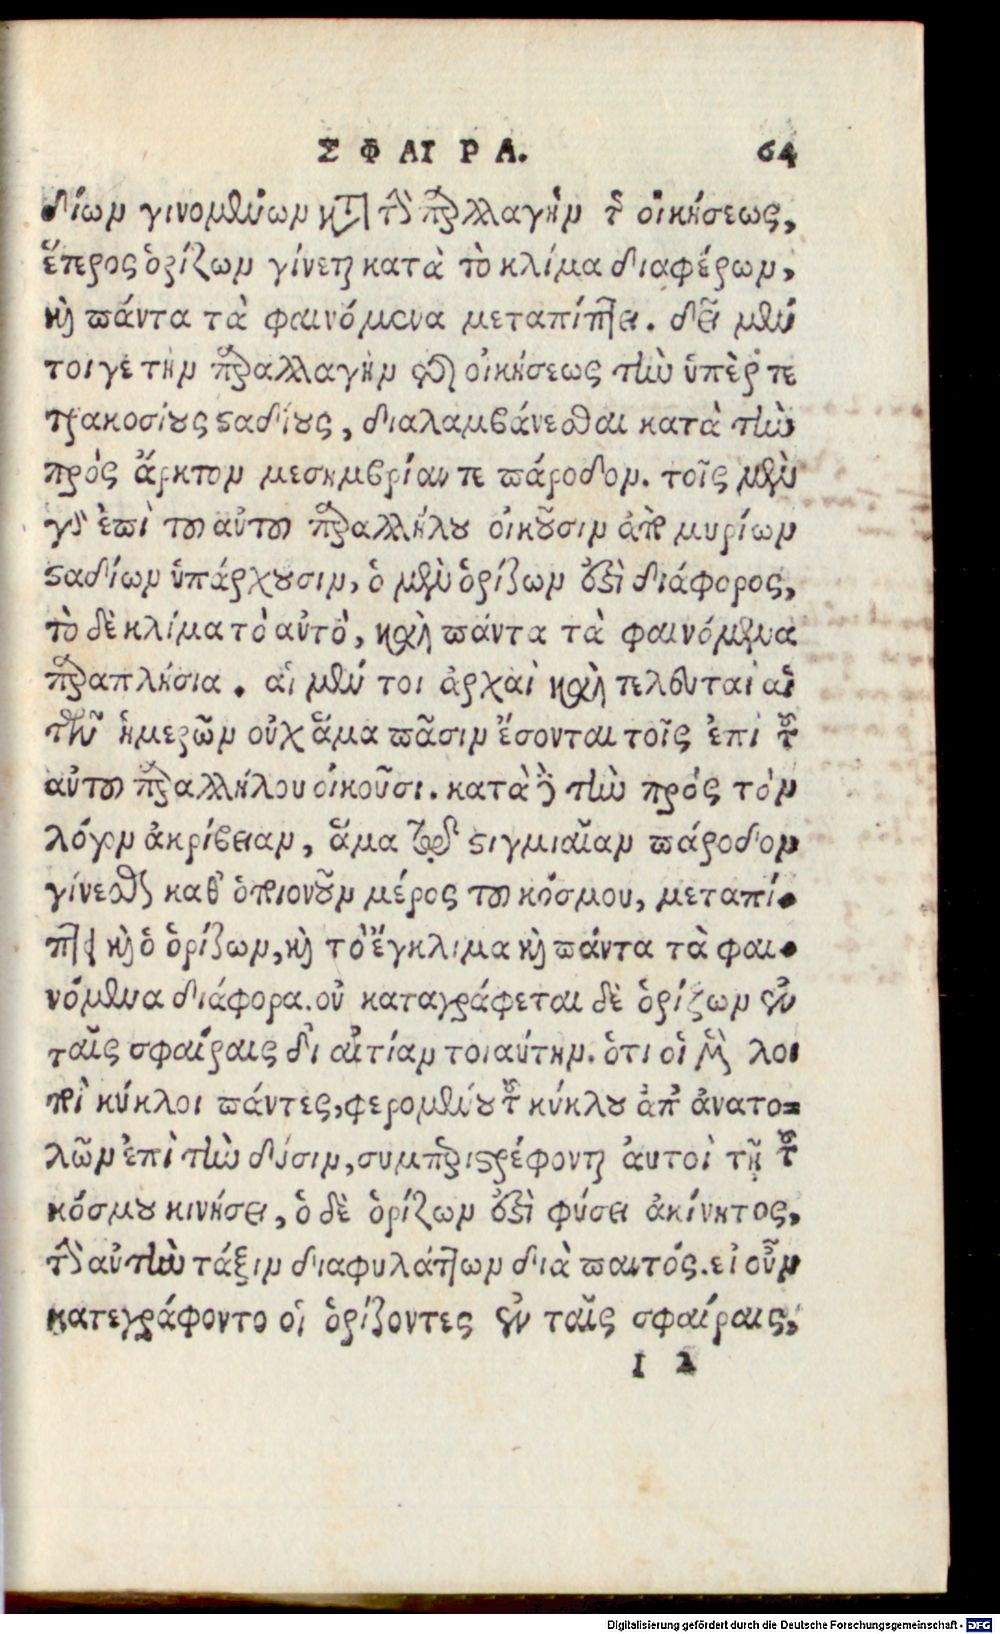 ΣΦΑΙΡΑ. 64
δίων γινομένων κατὰ τὴν παραλλαγὴν τῆς οἰκήσεως,
ἕτερος ὁρίζων γίνεται κατὰ τὸ κλίμα διαφέρων,
καὶ πάντα τὰ φαινόμενα μεταπίπτει. δεῖ μέν
τοιγε τὴν παραλλαγὴν τῆς οἰκήσεως τὴν ὑπὲρ τε
τρακοσίους σαδίους, διαλαμβάνεσθαι κατὰ τὴν
πρὸς ἄρκτον μεσημβρίαν τε πάροδον. τοῖς μὲν
γὰρ ἐπὶ τοῦ αὐτοῦ παραλλήλου οἰκοῦσιν ἀπὸ μυρίων
σταδίων ὑπάρχουσιν, ὁ μὲν ὁρίζων ἐστὶ διάφορος,
τὸ δὲ κλίμα τὸ αὐτὸ, καὶ πάντα τὰ φαινόμενα
παραπλήσια. αἱ μέν τοι ἀρχαὶ καὶ τελευταὶ αἱ
τῶν ἡμερῶν οὐχ ἅμα πᾶσιν ἔσονται τοῖς ἐπὶ τοῦ
αὐτοῦ παραλλήλου οἰκοῦσι. κατὰ δὲ τὴν πρὸς τὸν
λόγον ἀκρίβειαν, ἅμα τῷ στιγμιαίαν πάροδον
γίνεσθαι καθ' ὁποιονοῦν μέρος τοῦ κόσμου, μεταπί-
πτει καὶ ὁ ὁρίζων, καὶ τὸ ἔγκλιμα καὶ πάντα τὰ φαι-
νόμενα διάφορα. οὐ καταγράφεται δὲ ὁρίζων ἐν
ταῖς σφαίραις δι αἰτίαν τοιαύτην. ὅτι οἱ μὲν λοι
ποὶ κύκλοι πάντες, φερομένου τοῦ κύκλου ἀπ' ἀνατο-
λῶν ἐπὶ τὴν δύσιν, συμπεριστρέφονται αὐτοὶ τῇ τοῦ
κόσμου κινήσει, ὁ δὲ ὁρίζων ἐστὶ φύσει ἀκίνητος,
τὴν αὐτὴν τάξιν διαφυλάττων διὰ παντός. εἰ οὖν
κατεγράφοντο οἱ ὁρίζοντες ἐν ταῖς σφαίραις,
I 2
Digitalisierung gefördert durch die Deutsche Forschungsgemeinschaft - DFG